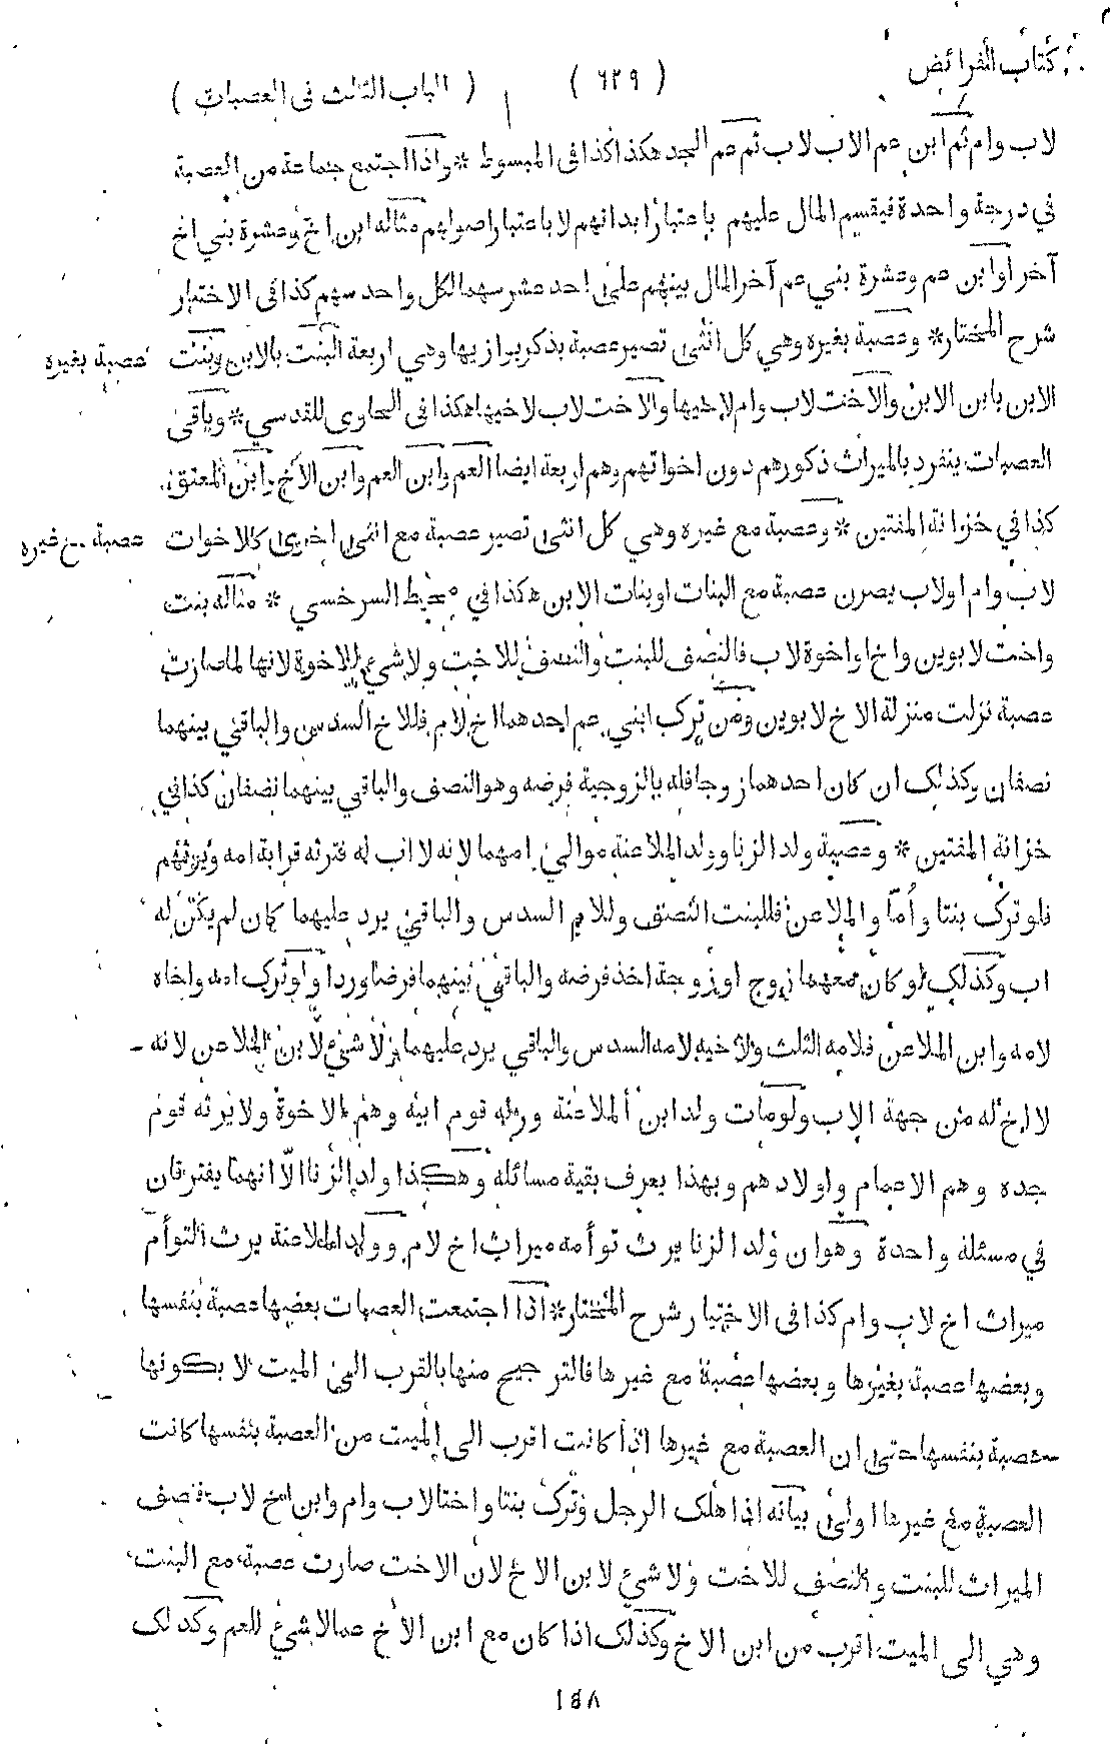 كتاب الفرائض
( ٦٢٩ )
( الباب الثالث فى العصبات )
لاب وام ثم ابن عم الاب لاب ثم عم الجد هكذا كذا فى المبسوط * واذا اجتمع جماعة من العصبة
في درجة واحدة فيقسم المال عليهم باعتبار ابدانهم لا باعتبار اصولهم مثاله ابن اخ وعشرة بني اخ
آخر او ابن عم وعشرة بني عم آخر المال بينهم على احد عشر سهما لكل واحد سهم كذا فى الاختيار
شرح المختار * وعصبة بغيره وهي كل انثى تصير عصبة بذكر يوازيها وهي اربعة البنت بالابن وبنت
عصبة بغيره
الابن بابن الابن والاخت لاب وام لاخيها والاخت لاب لاخيها هكذا فى الحاوى للقدسي * وباقى
العصبات ينفرد بالميراث ذكورهم دون اخواتهم وهم اربعة ايضا العم وابن العم وابن الاخ وابن المعتق
كذا في خزانة المفتين * وعصبة مع غيره وهي كل انثى تصير عصبة مع انثى اخرى كالاخوات
عصبة مع غيره
لاب وام او لاب يصرن عصبة مع البنات او بنات الابن هكذا في محيط السرخسي * مثاله بنت
واخت لابوين واخ او اخوة لاب فالنصف للبنت والنصف للاخت ولا شيء للاخوة لانها لما صارت
عصبة نزلت منزلة الاخ لابوين ومن ترك ابني عم احدهما اخ لام فللاخ السدس والباقي بينهما
نصفان وكذلك ان كان احدهما زوجا فله بالزوجية فرضه وهو النصف والباقي بينهما نصفان كذا في
خزانة المفتين * وعصبة ولد الزنا وولد الملاعنة موالي امهما لانه لا اب له فترثه قرابة امه ويرثهم
فلو ترك بنتا وأمّا والملاعن فللبنت النصف وللام السدس والباقي يرد عليهما كان لم يكن له
اب وكذلك لو كان معهما زوج او زوجة اخذ فرضه والباقي بينهما فرضا وردا ولو ترك امه واخاه
لامه وابن الملاعن فلامه الثلث ولاخيه لامه السدس والباقي يرد عليهما ولا شيء لابن الملاعن لانه
لا اخ له من جهة الاب ولو مات ولد ابن الملاعنة ورثه قوم ابيه وهم الاخوة ولا يرثه قوم
جده وهم الاعمام واولادهم وبهذا يعرف بقية مسائله وهكذا ولد الزنا الّا انهما يفترقان
في مسئلة واحدة وهو ان ولد الزنا يرث توأمه ميراث اخ لام وولد الملاعنة يرث التوأم
ميراث اخ لاب وام كذا فى الاختيار شرح المختار * اذا اجتمعت العصبات بعضها عصبة بنفسها
وبعضها عصبة بغيرها وبعضها عصبة مع غيرها فالترجيح منها بالقرب الى الميت لا بكونها
عصبة بنفسها حتى ان العصبة مع غيرها اذا كانت اقرب الى الميت من العصبة بنفسها كانت
العصبة مع غيرها اولى بيانه اذا هلك الرجل وترك بنتا واختا لاب وام وابن اخ لاب فنصف
الميراث للبنت والنصف للاخت ولا شيء لابن الاخ لان الاخت صارت عصبة مع البنت
وهي الى الميت اقرب من ابن الاخ وكذلك اذا كان مع ابن الاخ عما لا شيء للعم وكذلك